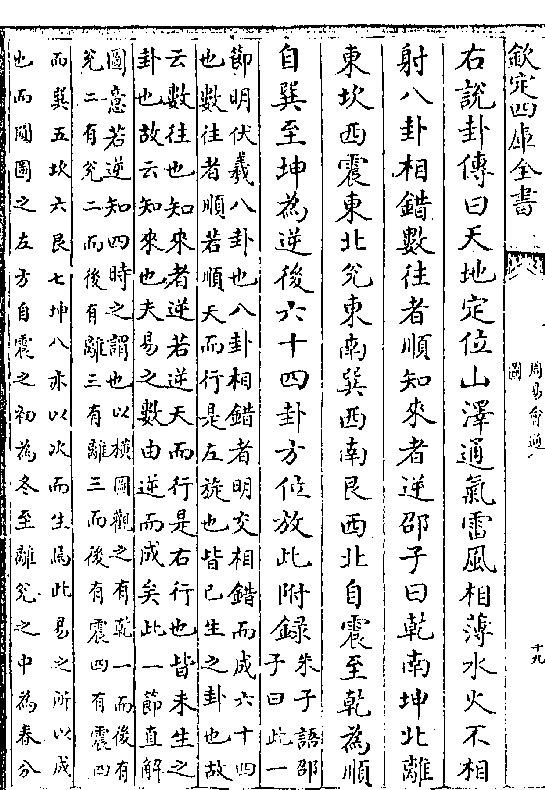 欽定四庫全書
周易會通
圖
十九
右說卦傳曰天地定位山澤通氣雷風相薄水火不相
射八卦相錯數往者順知來者逆邵子曰乾南坤北離
東坎西震東北兌東南巽西南艮西北自震至乾為順
自巽至坤為逆後六十四卦方位放此附錄朱子語邵
子曰此一
節明伏羲八卦也八卦相錯者明交相錯而成六十四
也數往者順若順天而行是左旋也皆已生之卦也故
云數往也知來者逆若逆天而行是右行也皆未生之
卦也故云知來也夫易之數由逆而成矣此一節直解
圖意若逆知四時之謂也以橫圖觀之有乾一而後有
兌二有兌二而後有離三有離三而後有震四有震四
而巽五坎六艮七坤八亦以次而生焉此易之所以成
也而圓圖之左方自震之初為冬至離兌之中為春分